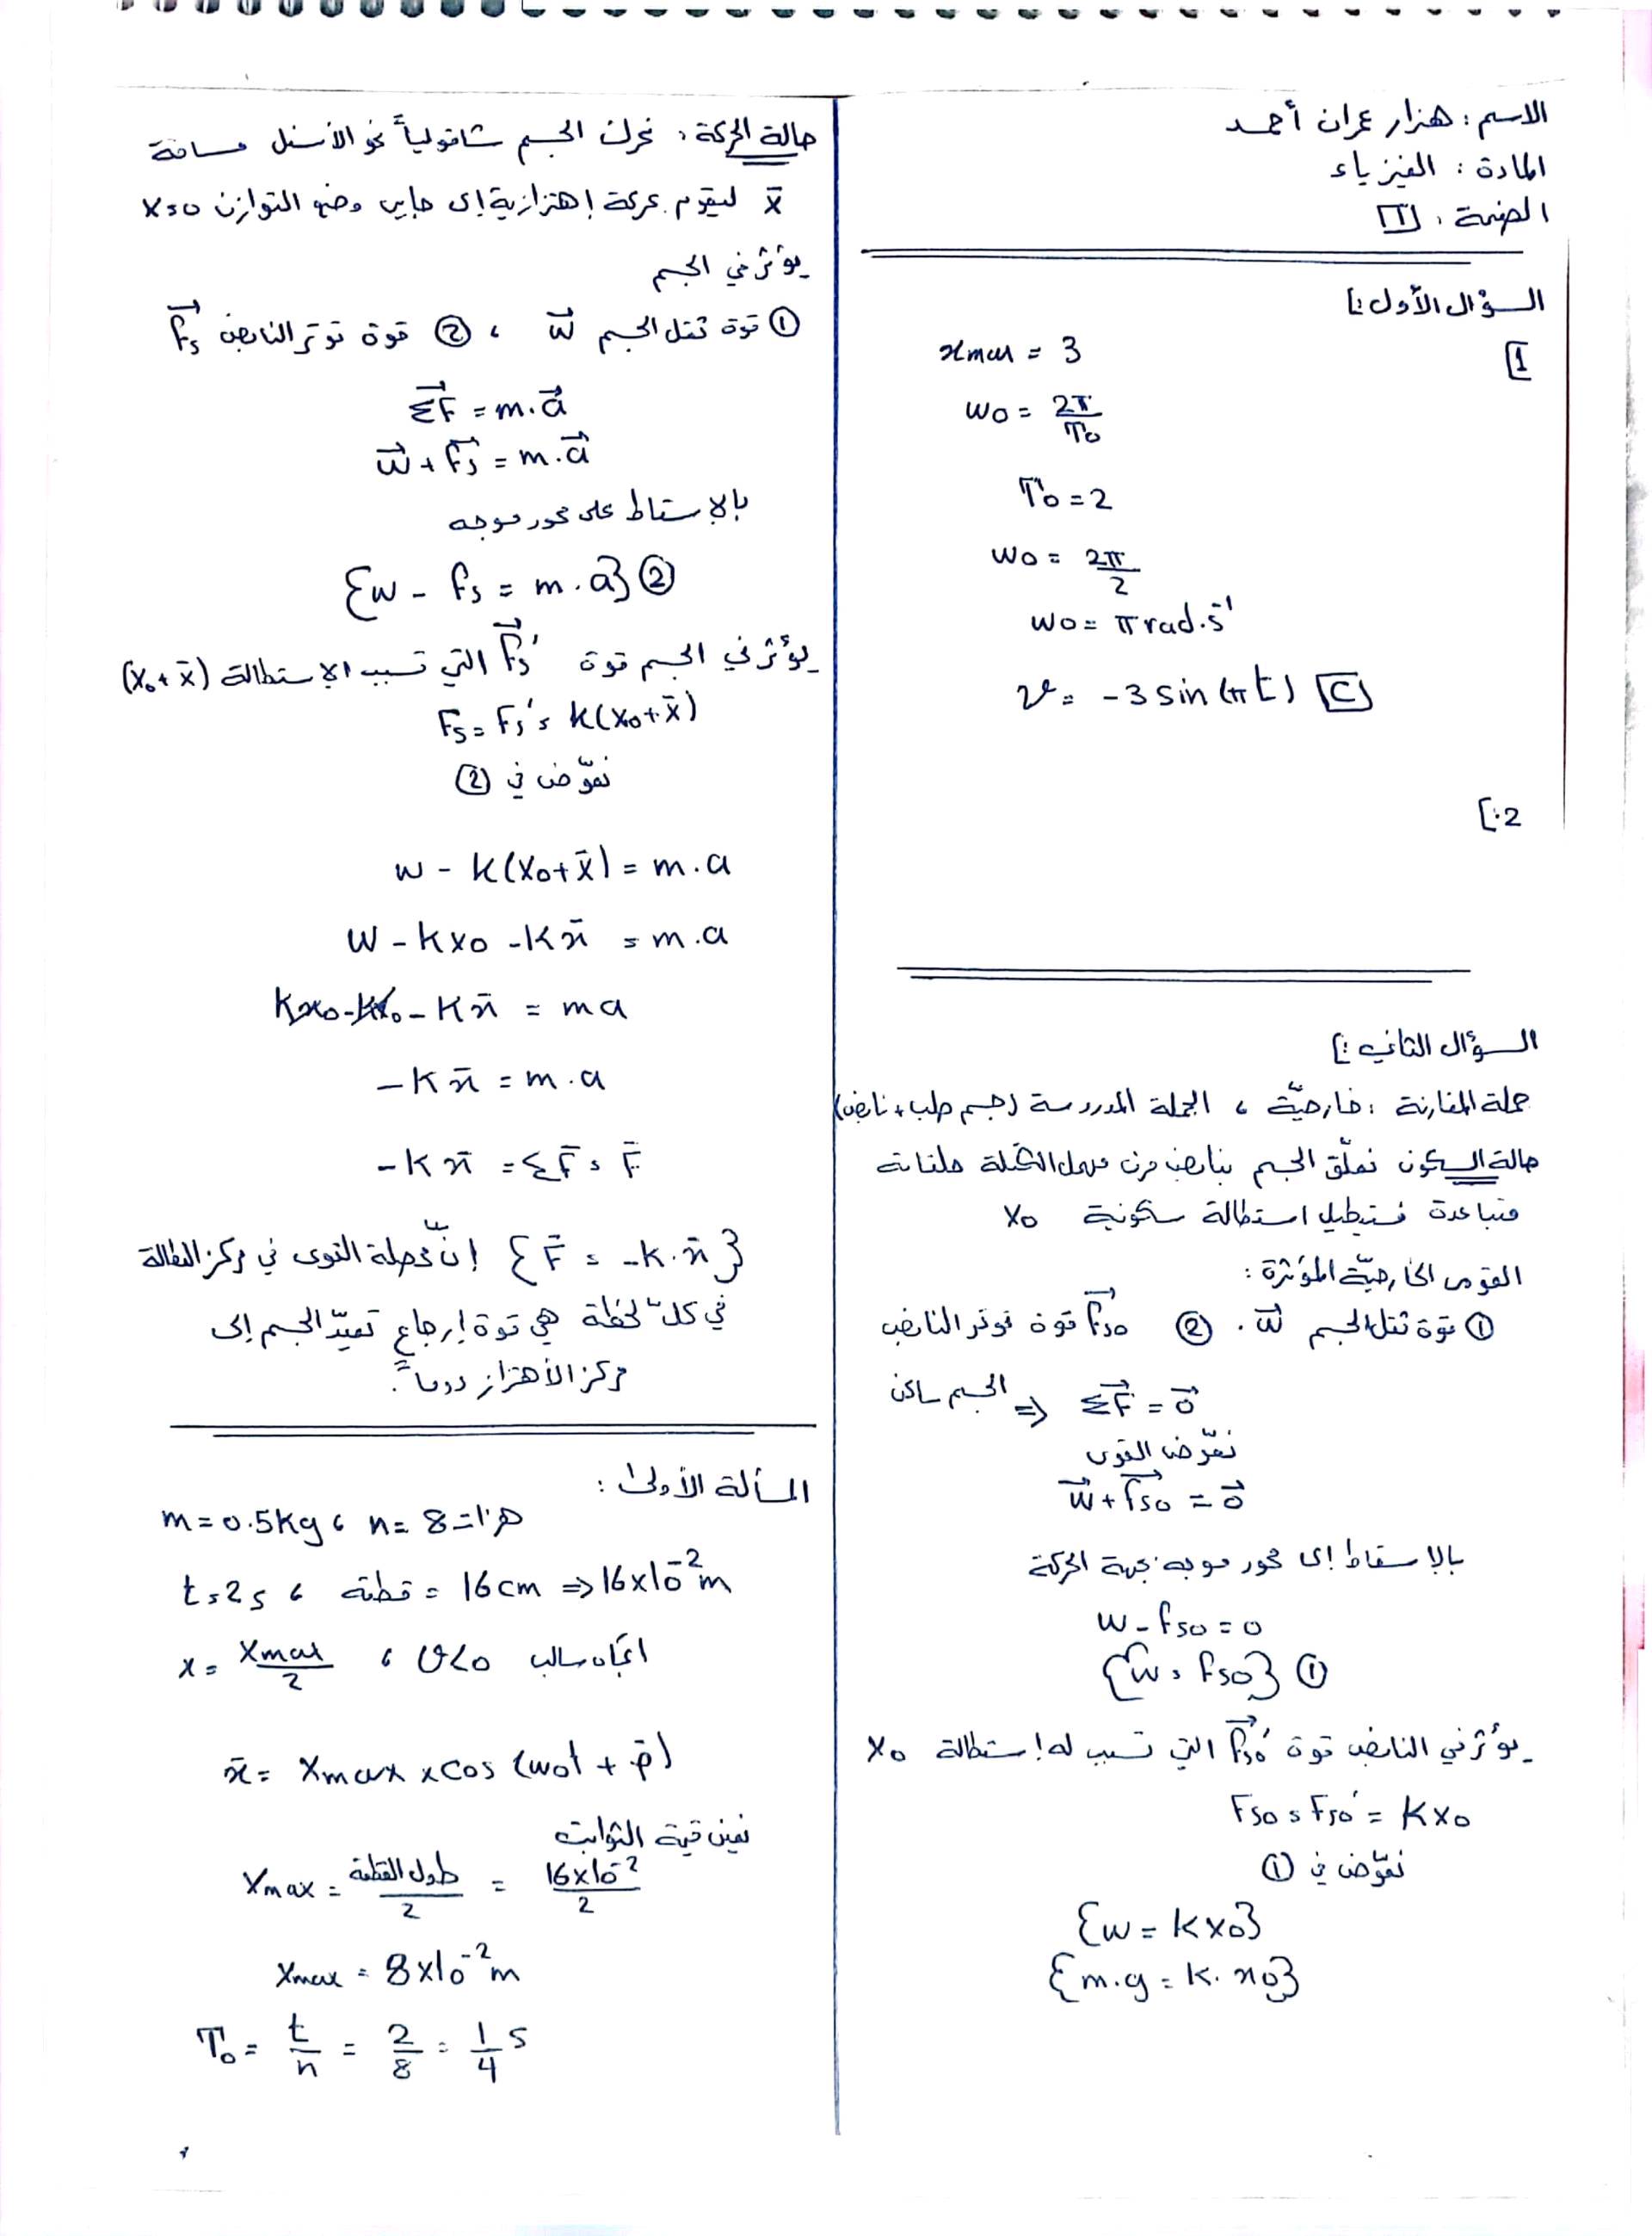 الاسم: هزار عمران أحمد
المادة: الفيزياء
الصفحة: 1
السؤال الأول:
1
xmax = 3
ω0 = 2π/T0
T0 = 2
ω0 = 2π/2
ω0 = π rad.s⁻¹
v = -3 sin (πt) C
2.
السؤال الثاني:
جملة المقارنة: خارجيّة، الجملة المدروسة (جسم صلب + نابض)
حالة السكون نعلّق الجسم بنابض مرن مهمل الكتلة حلقاته
متباعدة فيستطيل استطالة سكونية x0
القوى الخارجيّة المؤثرة:
① قوة ثقل الجسم w⃗. ② F⃗s0 قوة توتر النابض
الجسم ساكن ⇒ ΣF⃗ = 0⃗
نعوّض القوى
w⃗ + F⃗s0 = 0⃗
بالإسقاط إلى محور موجه بجهة الحركة
w - fs0 = 0
{w = fs0} ①
يؤثر في النابض قوة F⃗s0′ التي تسبب له استطالة x0
Fs0 = Fs0′ = kx0
نعوّض في ①
{w = kx0}
{m.g = k.x0}
حالة الحركة: نحرك الجسم شاقولياً نحو الأسفل مسافة
x̄ ليقوم بحركة إهتزازية إلى جانبي وضع التوازن x=0
يؤثر في الجسم
① قوة ثقل الجسم w⃗، ② قوة توتر النابض F⃗s
ΣF⃗ = m.a⃗
w⃗ + F⃗s = m.a⃗
بالإسقاط على محور موجه
{w - fs = m.a} ②
يؤثر في الجسم قوة F⃗s′ التي تسبب الإستطالة (x0+x̄)
Fs = Fs′ = k(x0+x̄)
نعوّض في ②
w - k(x0+x̄) = m.a
w - kx0 - kx̄ = m.a
kx0 - kx0 - kx̄ = ma
-kx̄ = m.a
-kx̄ = ΣF̄ = F̄
{F̄ = -k.x̄} إنّ محصلة القوى في مركز العطالة
في كلّ لحظة هي قوة إرجاع تعيدّ الجسم إلى
مركز الأهتزاز دوماً.
المسألة الأولى:
m = 0.5kg، n = 8 هزات
t = 2s، قطعة = 16cm ⇒ 16x10⁻²m
x = xmax/2، v<0 اتجاه سالب
x̄ = xmax x cos (ω0t + φ̄)
نعين قيمة الثوابت
xmax = طول القطعة/2 = 16x10⁻²/2
xmax = 8x10⁻²m
T0 = t/n = 2/8 = 1/4 s